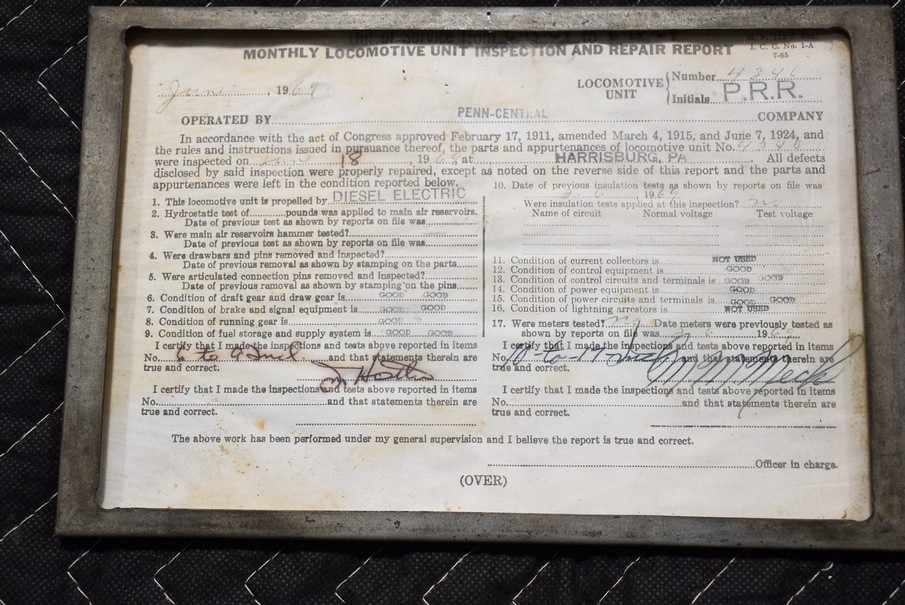 MONTHLY LOCOMOTIVE UNIT INSPECTION AND REPAIR REPORT
I. C. C. No. 1-A
7-65
, 1969
LOCOMOTIVE UNIT
Number
Initials P.R.R.
OPERATED BY PENN-CENTRAL COMPANY
In accordance with the act of Congress approved February 17, 1911, amended March 4, 1915, and June 7, 1924, and
the rules and instructions issued in pursuance thereof, the parts and appurtenances of locomotive unit No.
were inspected on 18, 1968 at HARRISBURG, PA. All defects
disclosed by said inspection were properly repaired, except as noted on the reverse side of this report and the parts and
appurtenances were left in the condition reported below.
1. This locomotive unit is propelled by DIESEL ELECTRIC
2. Hydrostatic test of pounds was applied to main air reservoirs.
Date of previous test as shown by reports on file was
3. Were main air reservoirs hammer tested?
Date of previous test as shown by reports on file was
4. Were drawbars and pins removed and inspected?
Date of previous removal as shown by stamping on the parts
5. Were articulated connection pins removed and inspected?
Date of previous removal as shown by stamping on the pins
6. Condition of draft gear and draw gear is GOOD GOOD
7. Condition of brake and signal equipment is GOOD GOOD
8. Condition of running gear is GOOD
9. Condition of fuel storage and supply system is GOOD GOOD
I certify that I made the inspections and tests above reported in items
No. 6 to 9 Incl. and that statements therein are
true and correct.
I certify that I made the inspections and tests above reported in items
No. and that statements therein are
true and correct.
10. Date of previous insulation tests as shown by reports on file was
196
Were insulation tests applied at this inspection?
Name of circuit Normal voltage Test voltage
11. Condition of current collectors is NOT USED
12. Condition of control equipment is GOOD
13. Condition of control circuits and terminals is GOOD GOOD
14. Condition of power equipment is GOOD
15. Condition of power circuits and terminals is GOOD GOOD
16. Condition of lightning arresters is NOT USED
17. Were meters tested? Date meters were previously tested as
shown by reports on file was 196
I certify that I made the inspections and tests above reported in items
No. 10 to 17 and that statements therein are
true and correct.
I certify that I made the inspections and tests above reported in items
No. and that statements therein are
true and correct.
The above work has been performed under my general supervision and I believe the report is true and correct.
Officer in charge.
(OVER)